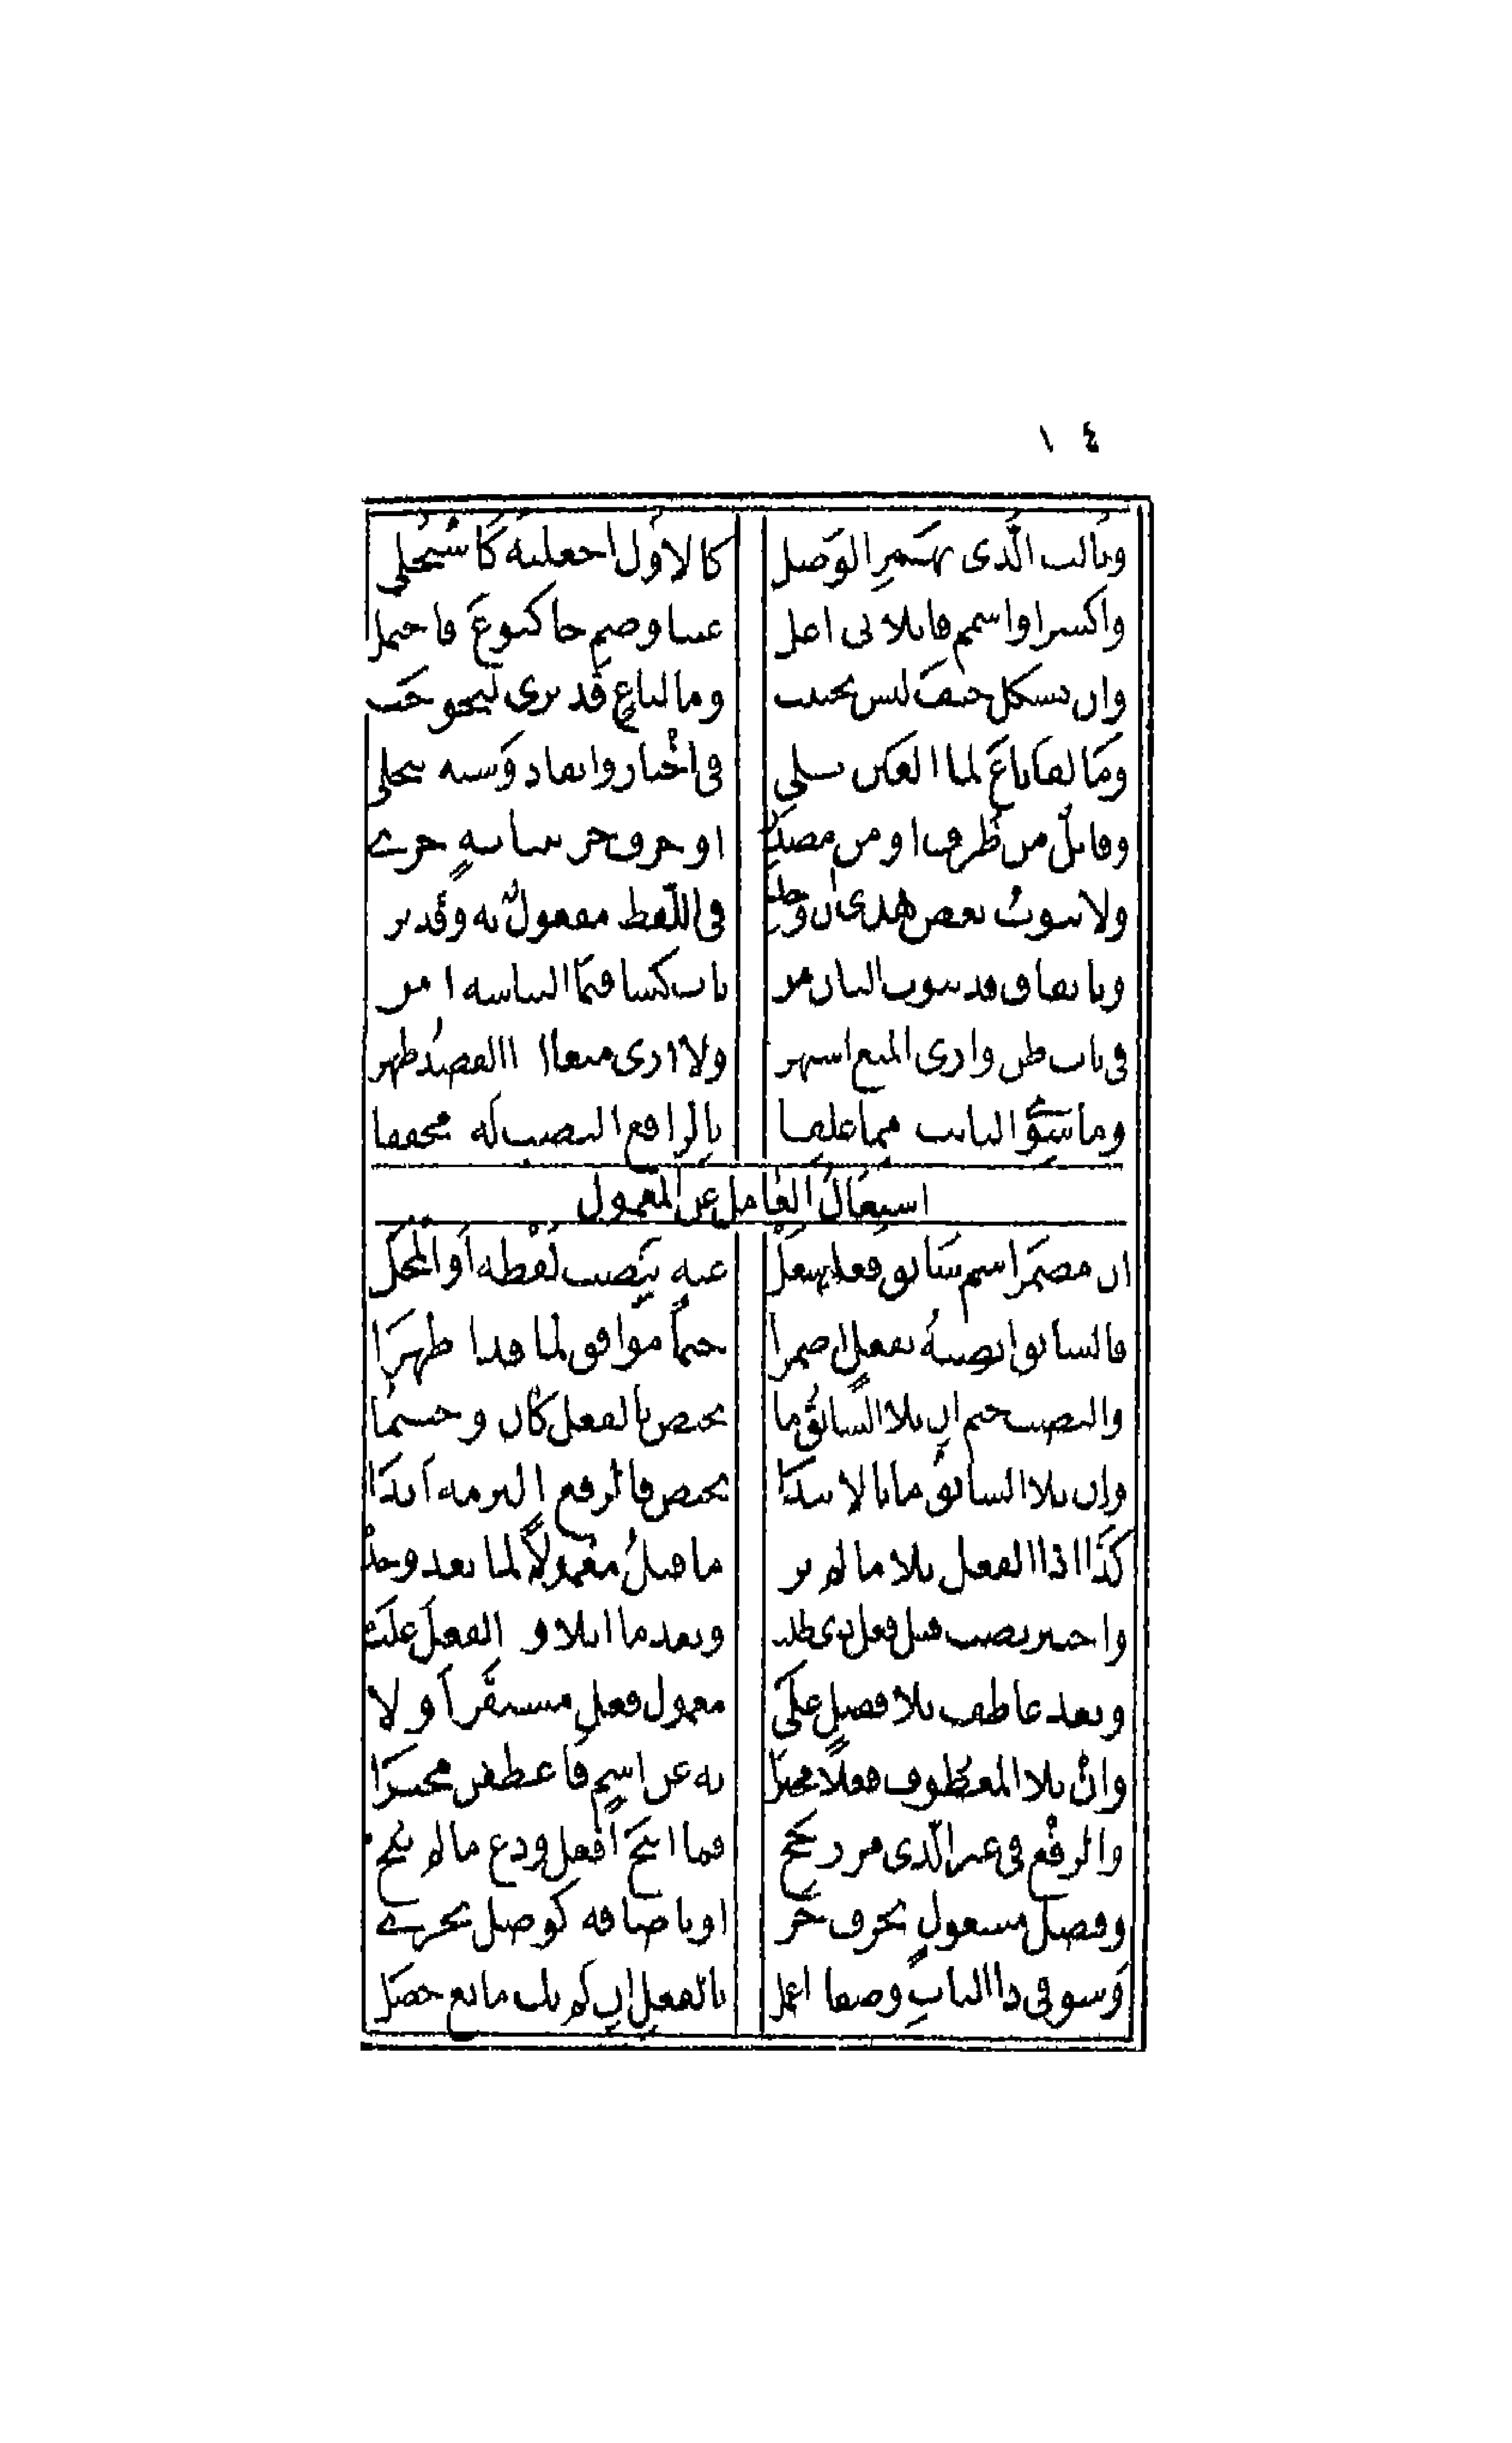 ١٤
وثالث الذى بهمز الوصل كالاول اجعلنه كاستحلى
واكسر او اشمم فا ثلاثى اعل عينا وضم جا كبوع فاحتمل
وان بشكل خيف لبس يجتنب وما لباع قد يرى لنحو حب
وما لفا باع لما العين تلى فى اختار وانقاد وشبه ينجلى
وقابل من ظرف او من مصدر او حرف جر بنيابة حرى
ولا ينوب بعض هذى ان وجد فى اللفظ مفعول به وقد يرد
وباتفاق قد ينوب الثان من باب كسا فيما التباسه امن
فى باب ظن وارى المنع اشتهر ولا ارى منعا اذا القصد ظهر
وما سوى النايب مما علقا بالرافع النصب له محققا
اشتغال العامل عن المعمول
ان مضمر اسم سابق فعلا شغل عنه بنصب لفظه او المحل
فالسابق انصبه بفعل اضمرا حتما موافق لما قد اظهرا
والنصب حتم ان تلا السابق ما يختص بالفعل كان وحيثما
وان تلا السابق ما بالابتدا يختص فالرفع التزمه ابدا
كذا اذا الفعل تلا ما لم يرد ما قبل معمولا لما بعد وجد
واختير نصب قبل فعل ذى طلب وبعد ما ايلاوه الفعل غلب
وبعد عاطف بلا فصل على معمول فعل مستقر اولا
وان تلا المعطوف فعلا مخبرا به عن اسم فاعطفن مخيرا
والرفع فى غير الذى مر رجح فما ابيح افعل ودع ما لم يبح
وفصل مشغول بحرف جر او باضافة كوصل يجرى
وسو فى ذا الباب وصفا ذا عمل بالفعل ان لم يك مانع حصل